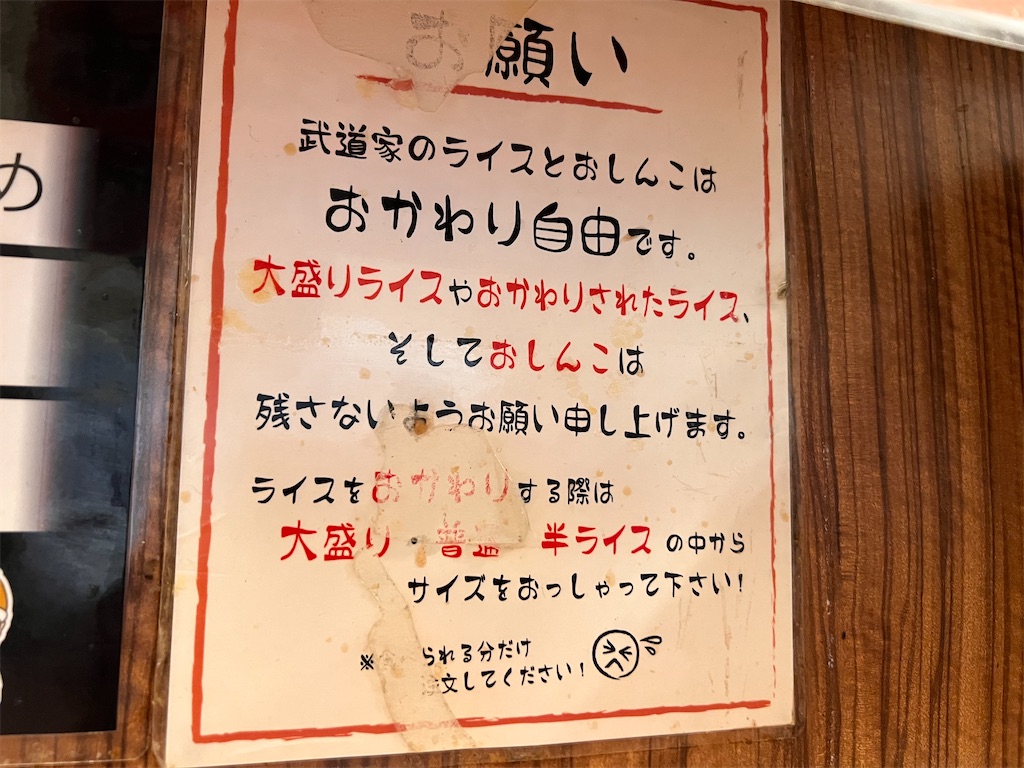 お願い
武道家のライスとおしんこは
おかわり自由です。
大盛りライスやおかわりされたライス、
そしておしんこは
残さないようお願い申し上げます。
ライスをおかわりする際は
大盛り・普通 半ライスの中から
サイズをおっしゃって下さい!
※ られる分だけ
注文してください!
め